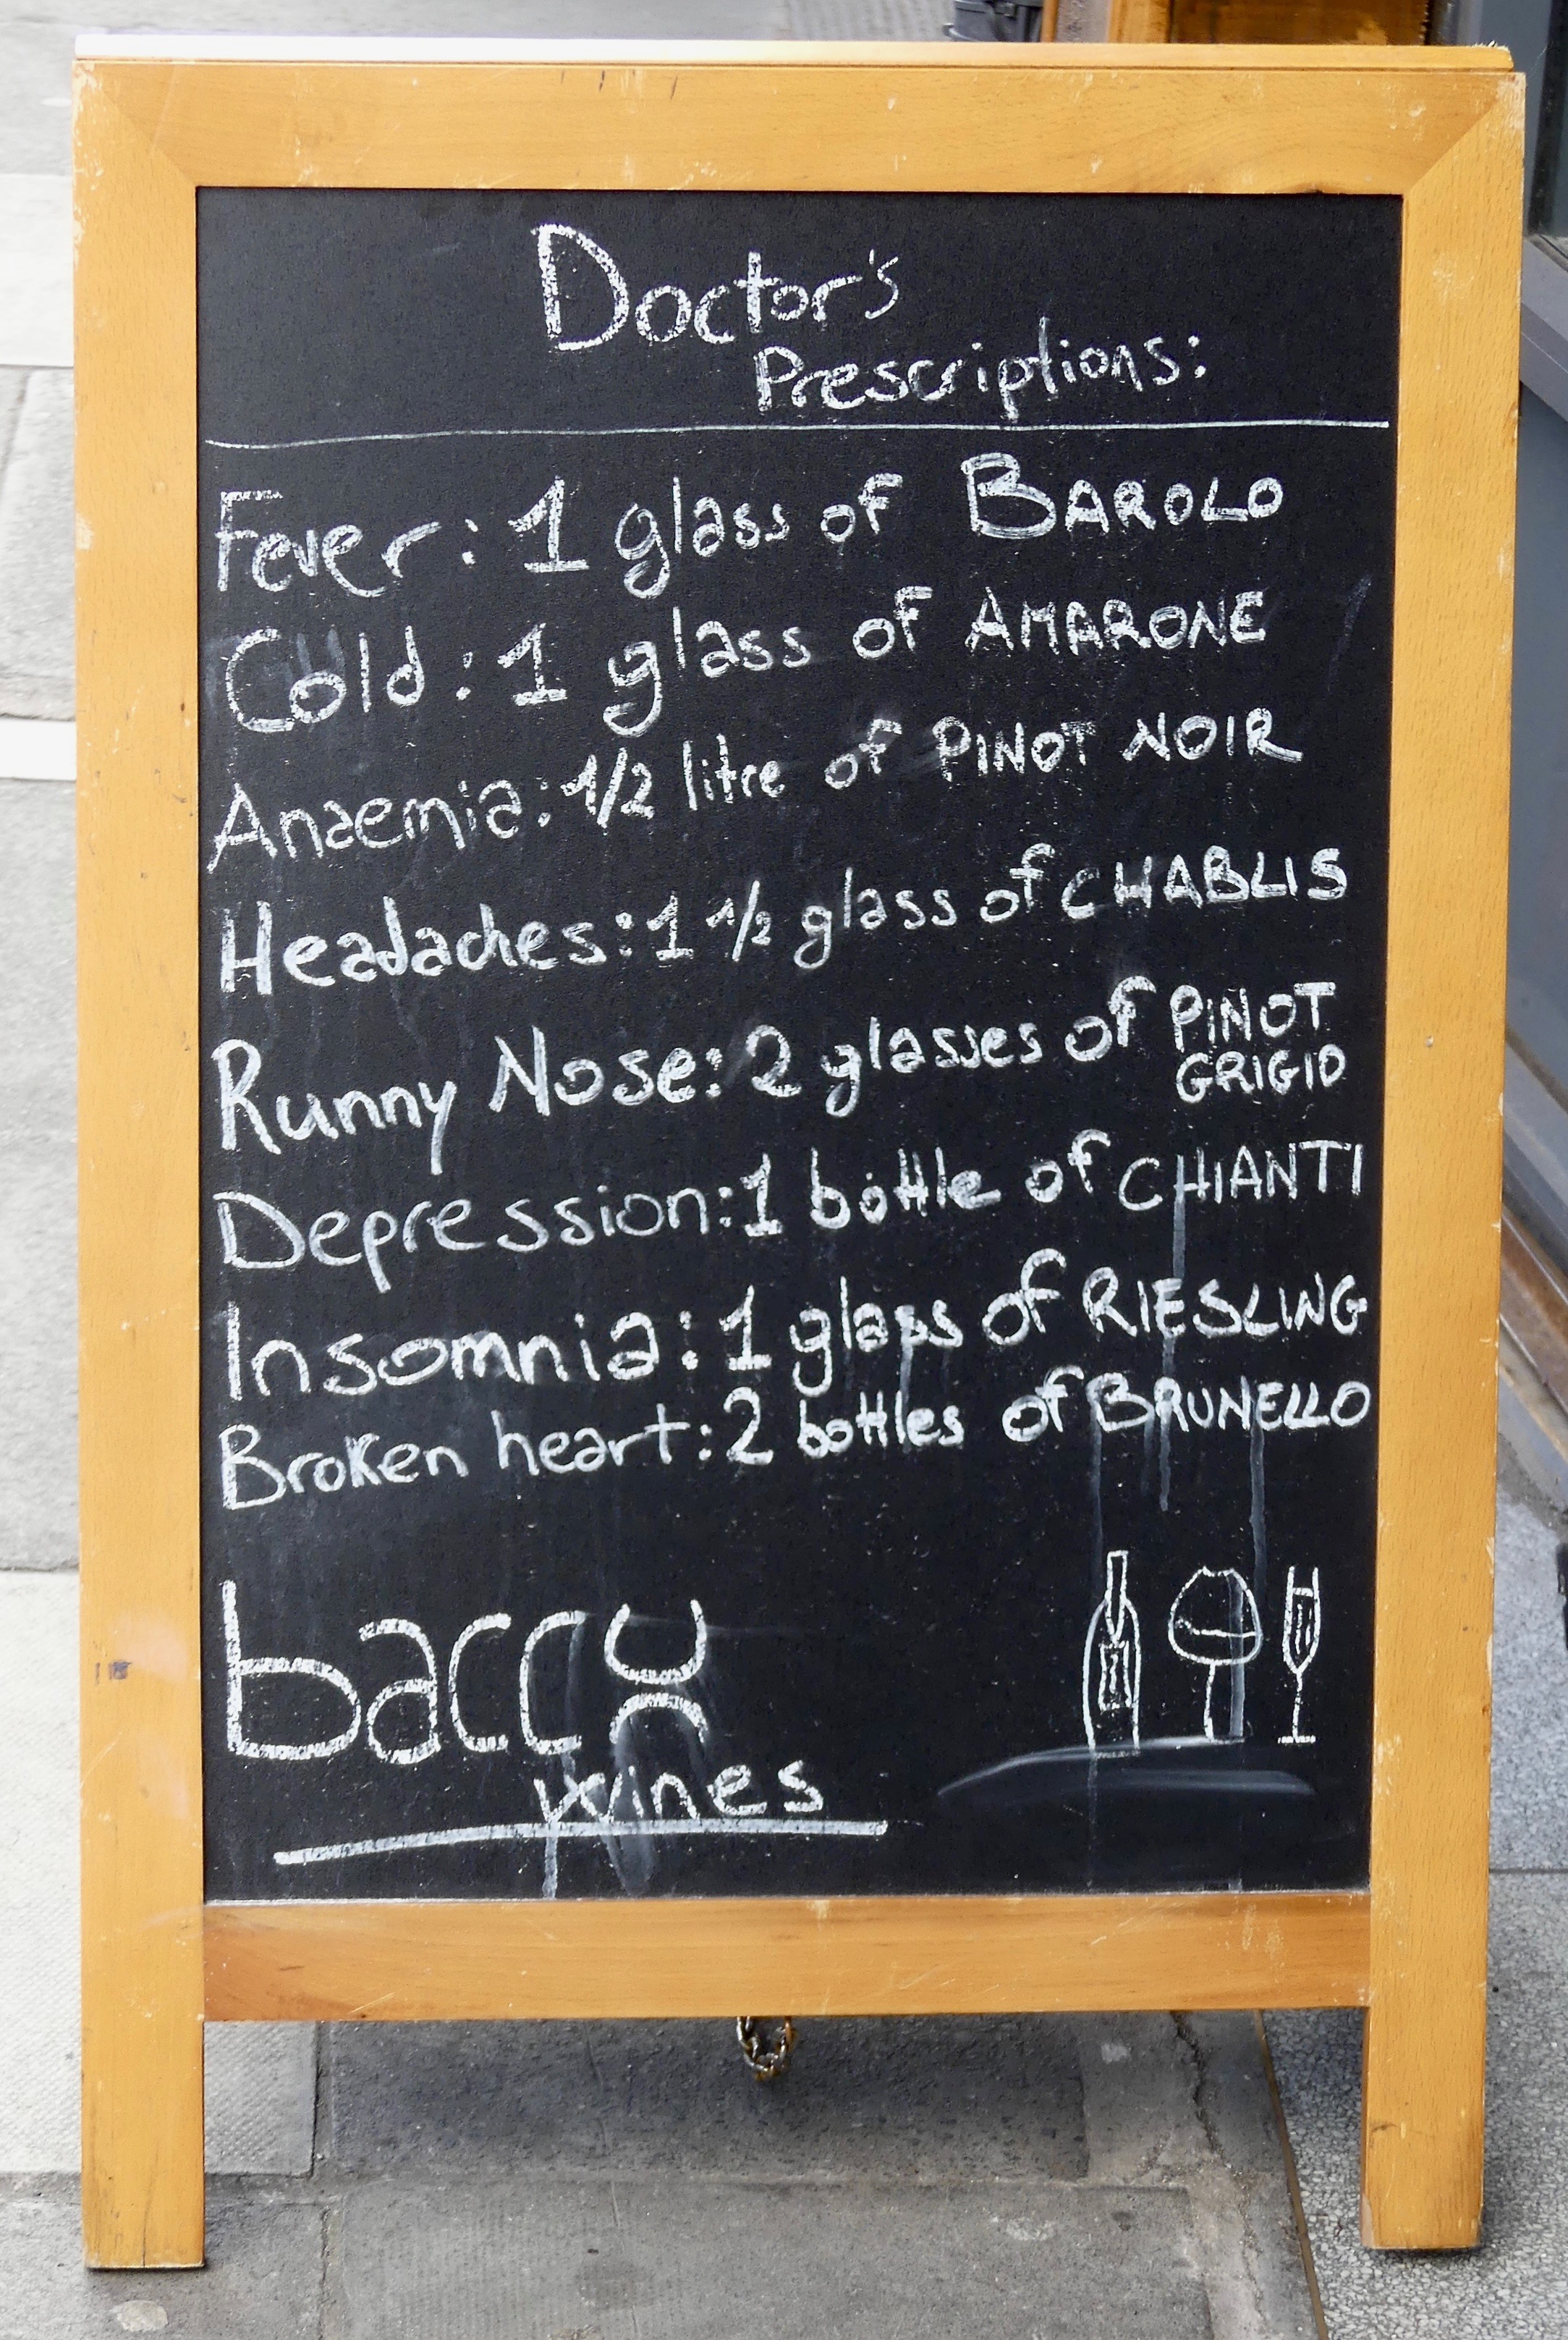 Doctor's
Prescriptions:
Fever: 1 glass of BAROLO
Cold: 1 glass of AMARONE
Anaemia: 1/2 litre of PINOT NOIR
Headaches: 1 1/2 glass of CHABLIS
Runny Nose: 2 glasses of PINOT
GRIGIO
Depression: 1 bottle of CHIANTI
Insomnia: 1 glass of RIESLING
Broken heart: 2 bottles of BRUNELLO
bacco
wines